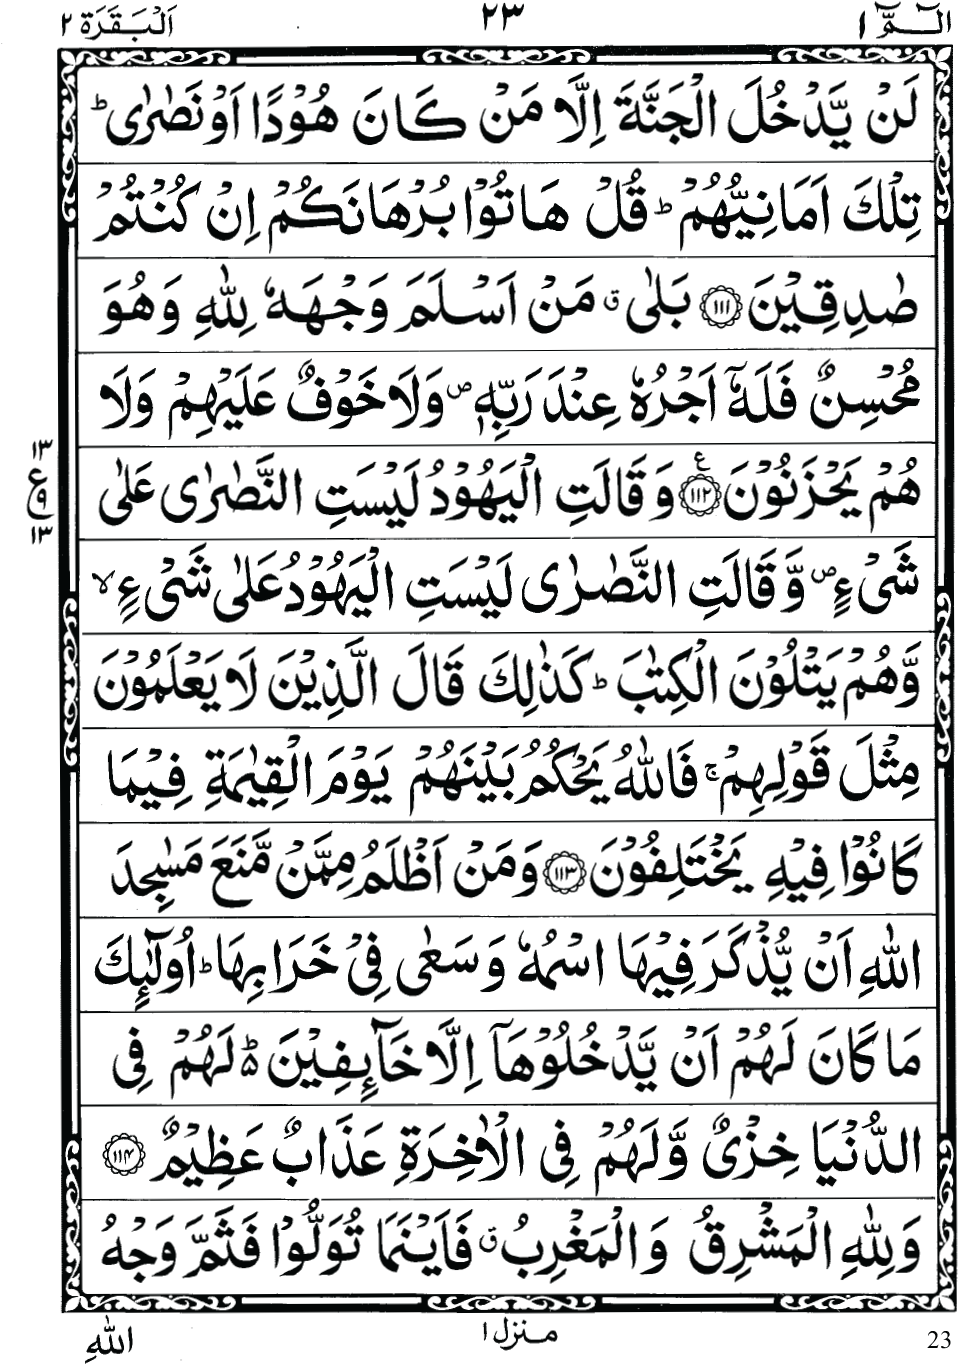 الٓـمّٓ ١ ٢٣ اَلْبَقَرَة ٢
لَنْ يَّدْخُلَ الْجَنَّةَ اِلَّا مَنْ كَانَ هُوْدًا اَوْ نَصٰرٰى ؕ
تِلْكَ اَمَانِيُّهُمْ ؕ قُلْ هَاتُوْا بُرْهَانَكُمْ اِنْ كُنْتُمْ
صٰدِقِيْنَ ﴿۱۱۱﴾ بَلٰى ۗ مَنْ اَسْلَمَ وَجْهَهٗ لِلّٰهِ وَهُوَ
مُحْسِنٌ فَلَهٗۤ اَجْرُهٗ عِنْدَ رَبِّهٖ ۪ وَلَا خَوْفٌ عَلَيْهِمْ وَلَا
هُمْ يَحْزَنُوْنَ ﴿۱۱۲﴾ ع وَقَالَتِ الْيَهُوْدُ لَيْسَتِ النَّصٰرٰى عَلٰى
١٣
ع
٩
١٣
شَىْءٍ ۪ وَّقَالَتِ النَّصٰرٰى لَيْسَتِ الْيَهُوْدُ عَلٰى شَىْءٍ ۙ
وَّهُمْ يَتْلُوْنَ الْكِتٰبَ ؕ كَذٰلِكَ قَالَ الَّذِيْنَ لَا يَعْلَمُوْنَ
مِثْلَ قَوْلِهِمْ ۚ فَاللّٰهُ يَحْكُمُ بَيْنَهُمْ يَوْمَ الْقِيٰمَةِ فِيْمَا
كَانُوْا فِيْهِ يَخْتَلِفُوْنَ ﴿۱۱۳﴾ وَمَنْ اَظْلَمُ مِمَّنْ مَّنَعَ مَسٰجِدَ
اللّٰهِ اَنْ يُّذْكَرَ فِيْهَا اسْمُهٗ وَسَعٰى فِىْ خَرَابِهَا ؕ اُولٰٓئِكَ
مَا كَانَ لَهُمْ اَنْ يَّدْخُلُوْهَاۤ اِلَّا خَآئِفِيْنَ ؕ۬ لَهُمْ فِى
الدُّنْيَا خِزْىٌ وَّلَهُمْ فِى الْاٰخِرَةِ عَذَابٌ عَظِيْمٌ ﴿۱۱۴﴾
وَلِلّٰهِ الْمَشْرِقُ وَالْمَغْرِبُ ۗ فَاَيْنَمَا تُوَلُّوْا فَثَمَّ وَجْهُ
23 منزل ١ اللّٰهِ